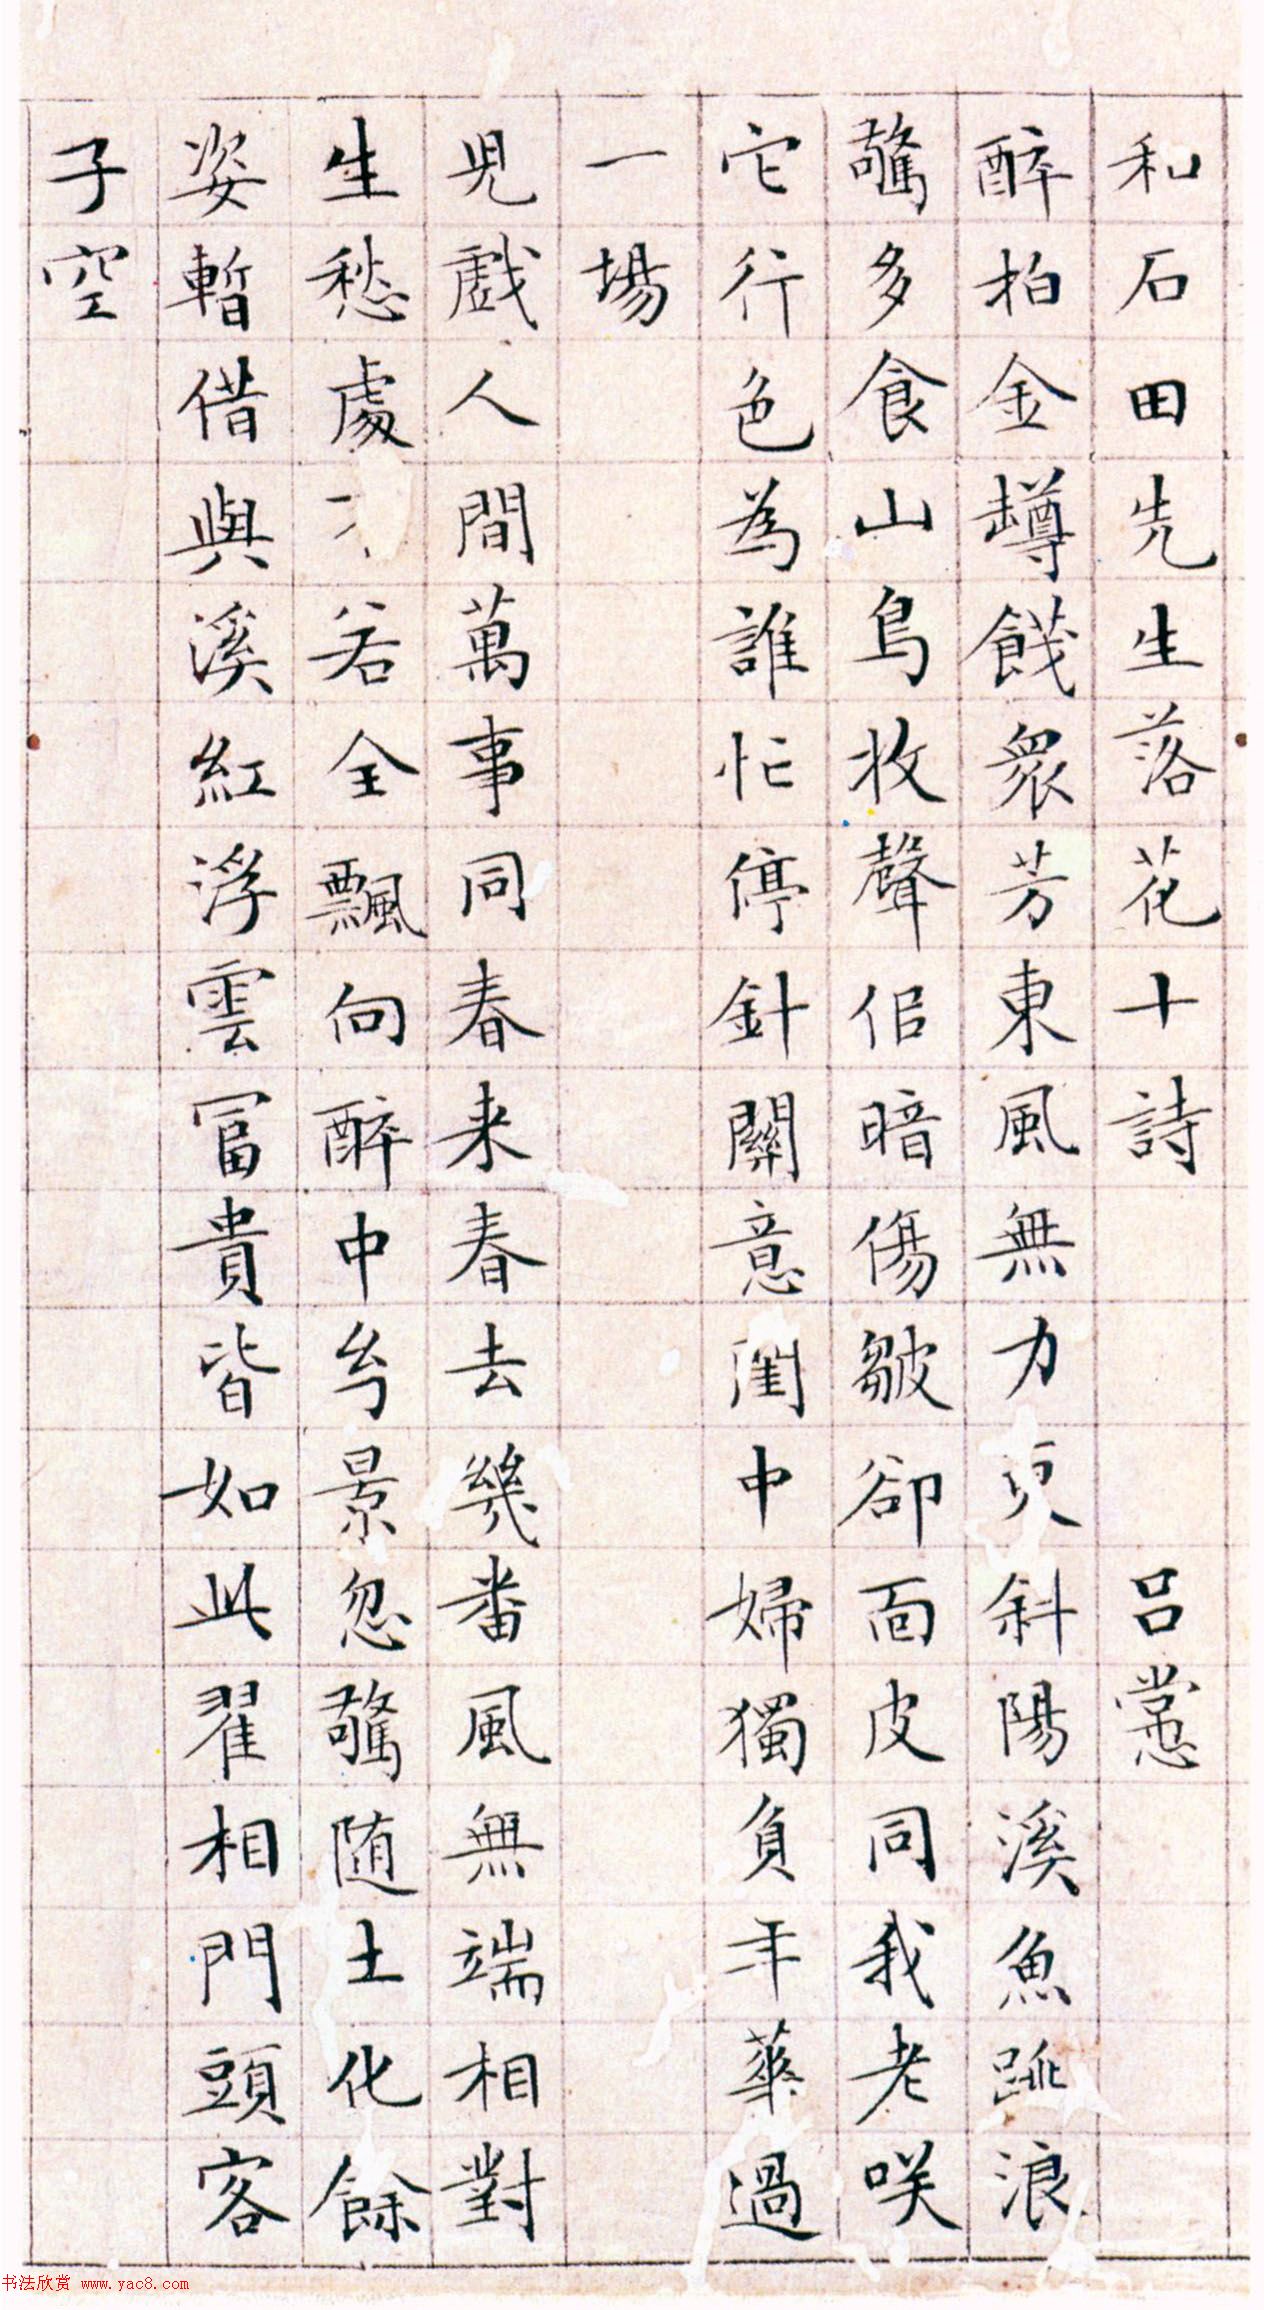 和石田先生落花十詩 呂㦂
醉拍金罇餞眾芳東風無力更斜陽溪魚跳浪
驚多食山鳥收聲佀暗傷皺卻面皮同我老咲
它行色為誰忙停針關意閨中婦獨負年華過
一場
児戲人間萬事同春来春去幾番風無端相對
生愁處不若全飄向醉中兮景忽驚随土化餘
姿暫借與溪紅浮雲冨貴皆如此翟相門頭客
子空
书法欣赏 www.yac8.com